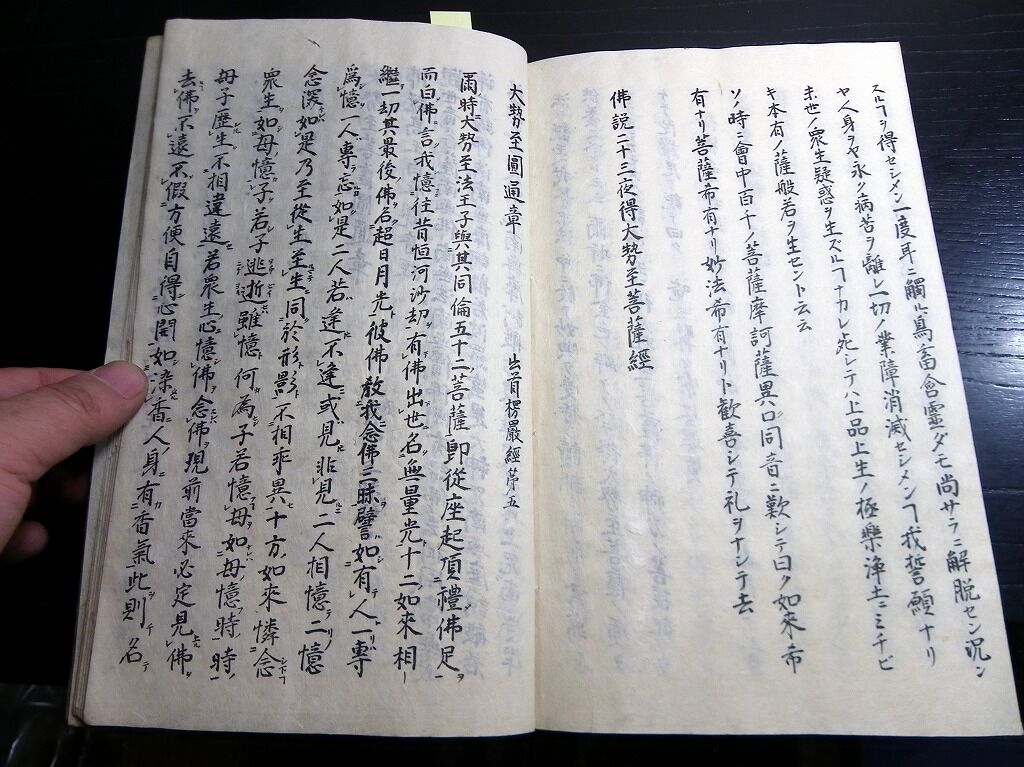 スルヿヲ得セシメン一度耳ニ觸ル鳥畜會靈ダモ尚サラニ解脱セン況ン
ヤ人身ヲヤ永ク病苦ヲ離レ一切ノ業障消滅セシメンヿ我誓願ナリ
末世ノ衆生疑惑ヲ生ズルヿナカレ死シテハ上品上生ノ極樂淨土ニミチビ
キ本有ノ薩般若ヲ生セント云云
ソノ時ニ會中百千ノ菩薩摩訶薩異口同音ニ歎シテ曰ク如來希
有ナリ菩薩希有ナリ妙法希有ナリト歡喜シテ礼ヲナシテ去
佛説二十三夜得大勢至菩薩經
大勢至圓通章 出首楞嚴經第五
爾時大勢至法王子與其同倫五十二菩薩即從座起頂禮佛足
而白佛言我憶往昔恒河沙劫有佛出世名無量光十二如來相
繼一劫其最後佛名超日月光彼佛教我念佛三昧譬如有人一專
爲憶一人專忘如是二人若逢不逢或見非見二人相憶二憶
念深如是乃至從生至生同於形影不相乖異十方如來憐念
衆生如母憶子若子逃逝雖憶何為子若憶母如母憶時
母子歴生不相違遠若衆生心憶佛念佛現前當來必定見佛
去佛不遠不假方便自得心開如染香人身有香氣此則名